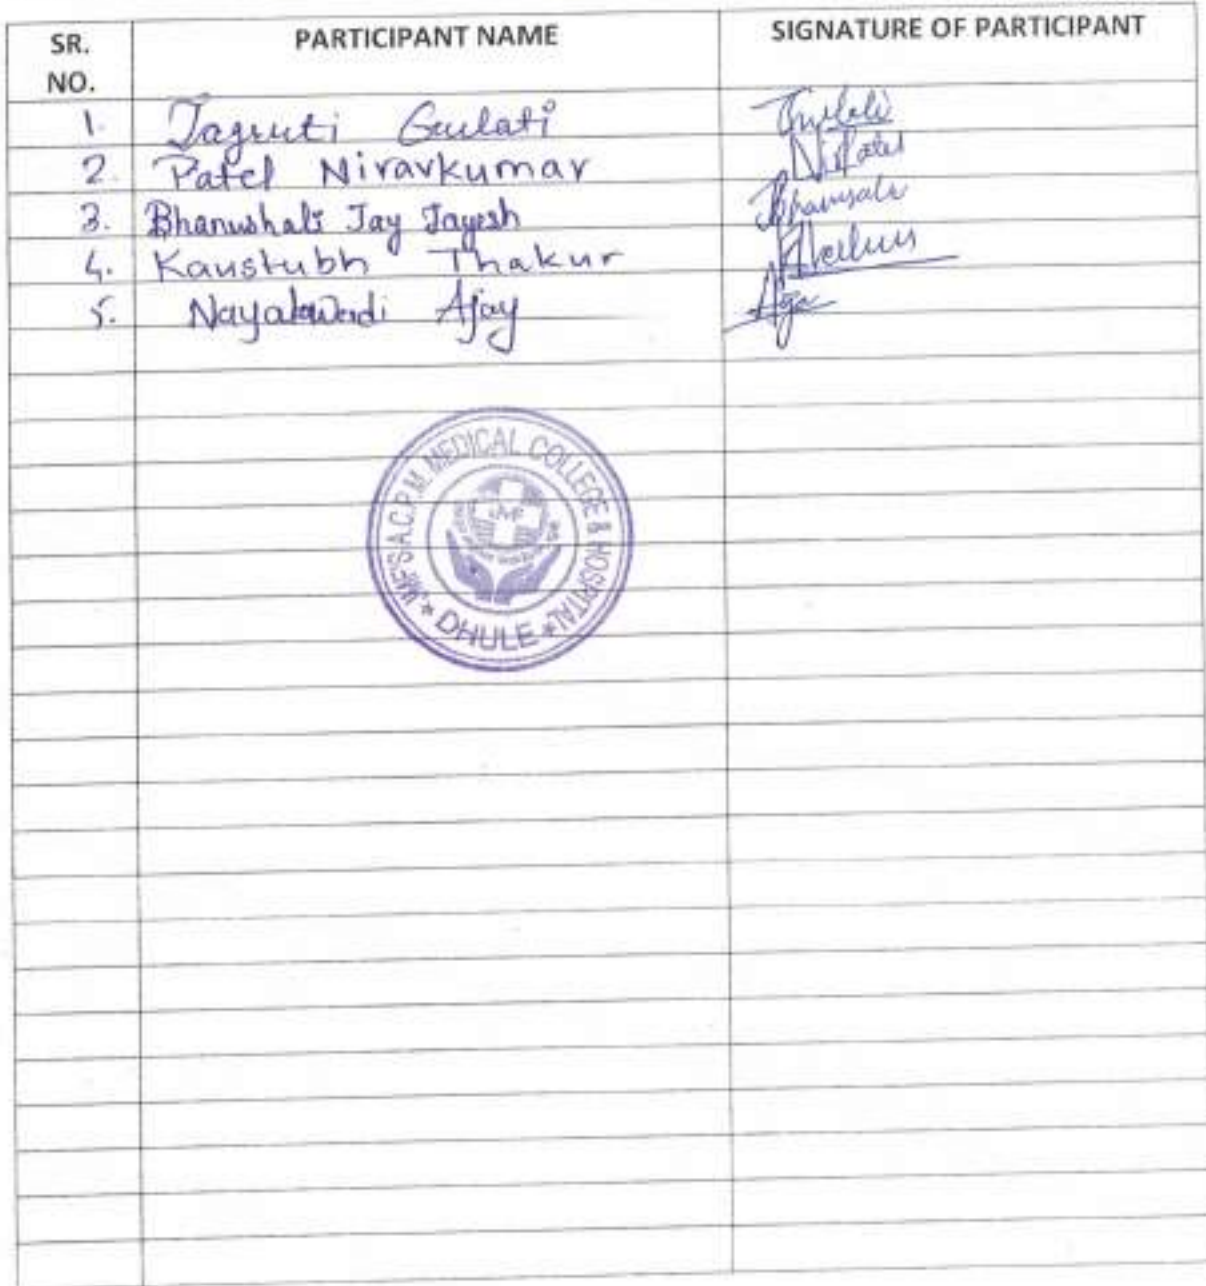 SR. NO. PARTICIPANT NAME SIGNATURE OF PARTICIPANT
1. Jagruti Gulati Gulati
2. Patel Niravkumar N.Patel
3. Bhanushali Jay Jayesh Bhanusali
4. Kaustubh Thakur
5. Ajay
JMF'S A.C.P.M. MEDICAL COLLEGE & HOSPITAL
* DHULE *